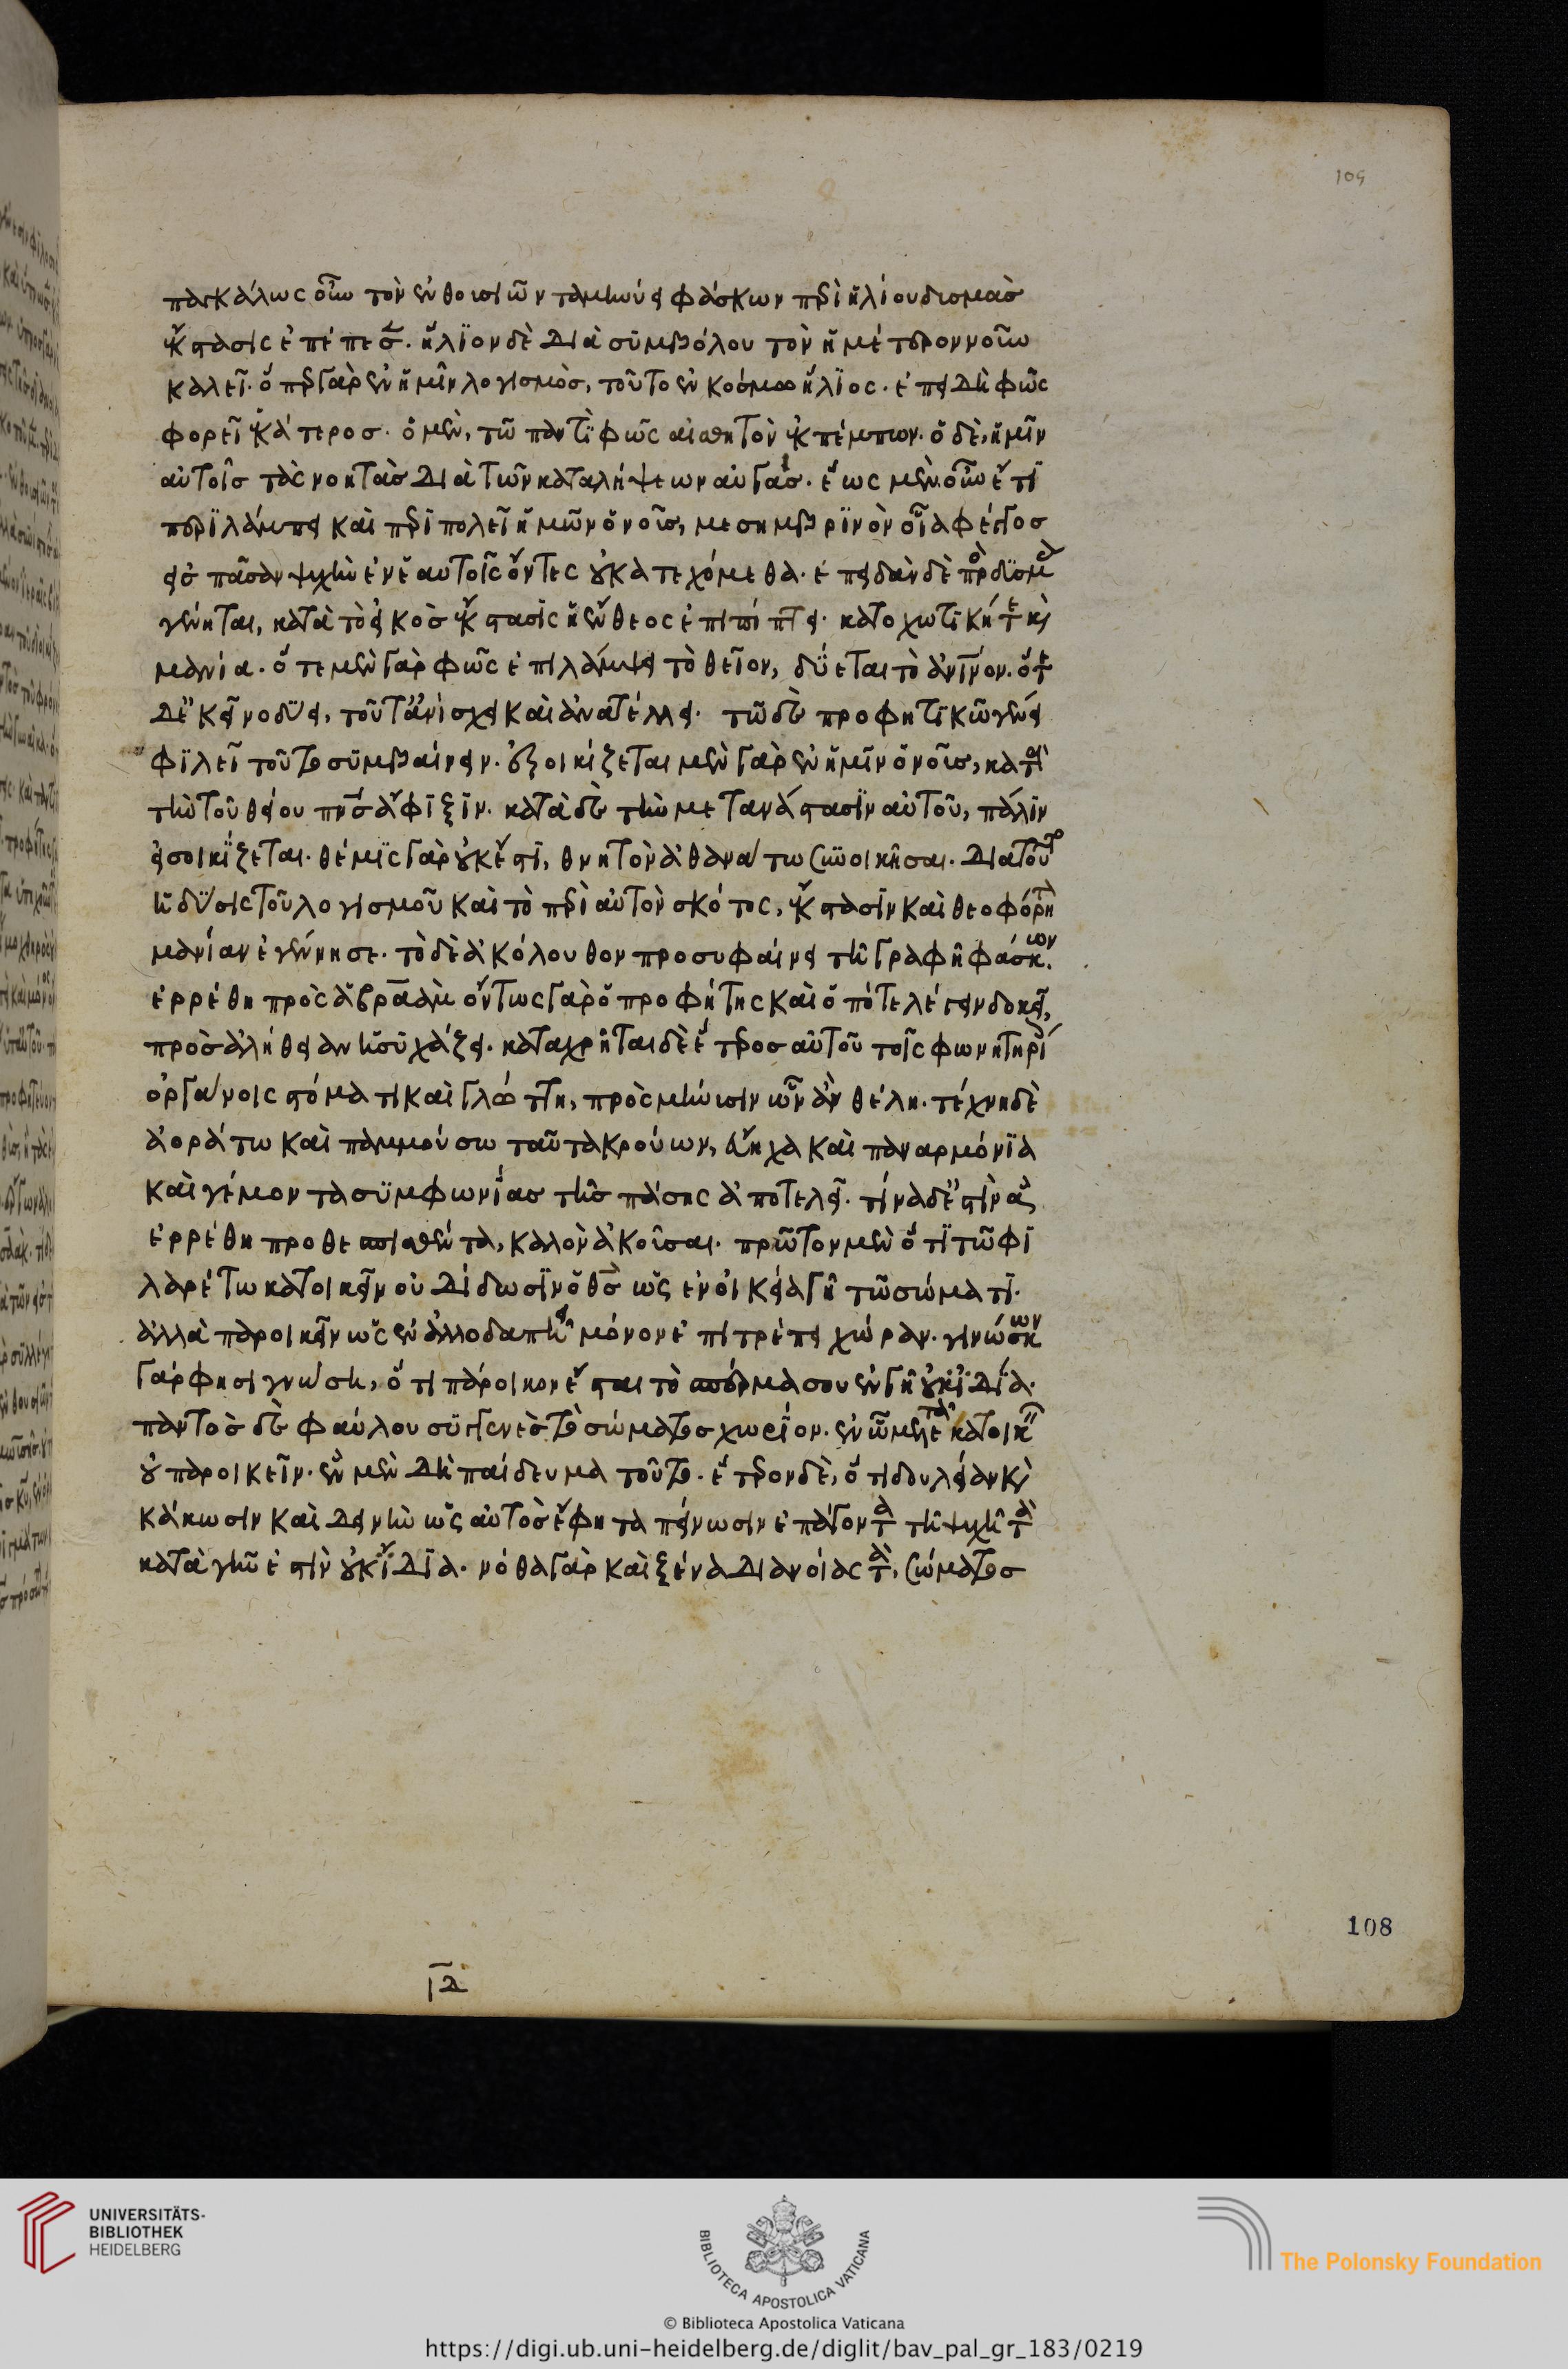 παγκάλως οὖν τὸν ἐνθουσιῶντα μηνύει φάσκων περὶ ἡλίου δυσμὰσ
ἔκστασις ἐπέπεσεν. ἥλϊον δὲ διὰ συμβόλου τὸν ἡμέτερον νοῦν
καλεῖ. ὅπερ γὰρ ἐν ἡμῖν λογισμὸσ, τοῦτο ἐν κόσμω ἥλϊος. ἐπειδὴ φῶς
φορεῖ ἑκάτεροσ. ὁ μὲν, τῶ παντὶ φῶς αἰσθητὸν ἐκπέμπων. ὁ δὲ, ἡμῖν
αὐτοῖσ τὰς νοητὰσ διὰ τῶν καταλήψεων αὐγάσ. ἕως μὲν οὖν ἔτϊ
περϊλάμπει καὶ περιπολεῖ ἡμῶν ὁ νοῦσ, μεσημβρϊνὸν οἷα φέγγοσ
εἰσ πᾶσαν ψυχὴν ἐν ἑαυτοῖς ὄντες οὐ κατεχόμεθα. ἐπειδὰν δὲ πρὸ δϊσμὰ
γένηται, κατὰ τὸ εἰκὸσ ἔκστασϊς ἡ ἔνθεος ἐπιπίπτει. κατοχωτικήτε καὶ
μανία. ὅτε μὲν γὰρ φῶς ἐπιλάμψει τὸ θεῖον, δύεται τὸ ἀνῖνον. ὅτε
δ' ἐκεῖνο δύει, τοῦτ' ἀνίσχει καὶ ἀνατέλλει. τῶ δὲ προφητϊκῶ γένει
φϊλεῖ τοῦτο συμβαίνειν. ἐξοικίζεται μὲν γὰρ ἐν ἡμῖν ὁ νοῦσ, κατὰ
τὴν τοῦ θείου πνσ ἄφιξϊν. κατὰ δὲ τὴν μετανάστασϊν αὐτοῦ, πάλϊν
εἰσοικΐζεται. θέμϊς γὰρ οὐκ ἔστϊ, θνητὸν ἀθανάτω συνοικῆσαι. διατοῦτο
ἡ δύσις τοῦ λογισμοῦ καὶ τὸ περὶ αὐτὸν σκότος, ἔκστασϊν καὶ θεοφόρητον
μανίαν ἐγέννησε. τὸ δὲ ἀκόλουθον προσυφαίνει τῆ γραφῆ φάσκων.
ἐρρέθη πρὸς ἁβραὰμ ὄντως γὰρ ὁ προφήτης καὶ ὁπότε λέγειν δοκεῖ,
πρὸσ ἀλήθειαν ἡσυχάζει. καταχρῆται δὲ ἕτεροσ αὐτοῦ τοῖς φωνητηρί
ὀργάνοις στόματι καὶ γλώττη, πρὸς μήνυσιν ὧν ἂν θέλη. τέχνη δὲ
ἀοράτω καὶ παμμούσω ταῦτα κρούων, εὔηχα καὶ παναρμόνϊα
καὶ γέμοντα συμφωνΐασ τῆσ πάσης ἀποτελεῖ. τίνα δέ ἐστὶν ἃ
ἐρρέθη προθεσπισθέντα, καλὸν ἀκοῦσαι. πρῶτον μὲν ὅτϊ τῶ φι
λαρέτω κατοικεῖν οὐ δίδωσϊν ὁ θσ ὡς ἐν οἰκεία γῆ τῶ σώματϊ.
ἀλλὰ παροικεῖν ὡς ἐν ἀλλοδαπῆ μόνον ἐπιτρέπει χώραν. γινώσκων
γάρ φησι γνώση, ὅτι πάροικον ἔσται τὸ σπέρμα σου ἐν γῆ οὐκ ἰδία.
παντὸσ δὲ φαύλου συγγενὲσ τὸ σώματοσ χωρίον. ἐν ὧ μελετᾶ κατοικεῖν
οὐ παροικεῖν. ἓν μὲν δὴ παίδευμα τοῦτο. ἕτερον δὲ, ὅτι δουλείαν καὶ
κάκωσιν καὶ δεινὴν ὡς αὐτὸσ ἔφη ταπείνωσιν ἐπάγοντα τῆ ψυχῆ τὰ
κατὰ γῆν ἐστὶν οὐκ ἴδϊα. νόθα γὰρ καὶ ξένα διανοίας τὰ, σώματοσ
ιδ
109
108
UNIVERSITÄTS-
BIBLIOTHEK
HEIDELBERG
BIBLIOTECA APOSTOLICA VATICANA
The Polonsky Foundation
© Biblioteca Apostolica Vaticana
https://digi.ub.uni-heidelberg.de/diglit/bav_pal_gr_183/0219